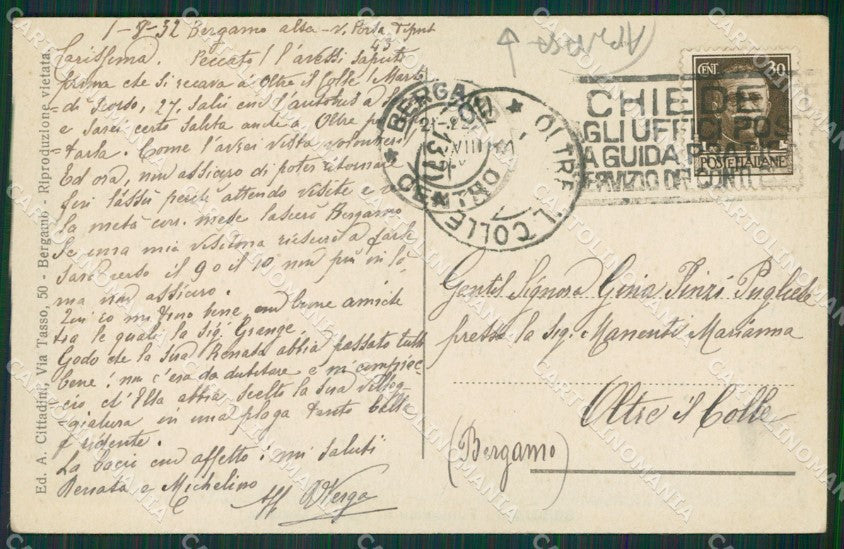 1-8-32 Bergamo alta - V. Porta Dipint
43
Carissima. Peccato! l'avessi saputo
prima che si recava a Oltre il Colle! Mart-
-dì scorso, 27, salii con l'autobus a
e sarei certo salita anche a Oltre per
farla. Come l'avrei vista volentieri
Ed ora, non assicuro di poter ritornare
fin lassù perché attendo visite e
la metà corr. mese lascerò Bergamo
Se una mia visitina riuscirò a farle
sarà verso il 9 o il 10 non più in là
ma non assicuro.
Qui io mi trovo bene, con buone amiche
tra le quali la Sig. Grange.
Godo che la sua Renata abbia passato tutto
bene! non c'era da dubitare e mi compiac-
cio ch'Ella abbia scelto la sua villeg-
-giatura in una plaga tanto bella
e ridente.
La bacio con affetto: mi saluti
Renata e Michelino
Aff
Ed. A. Cittadini, Via Tasso, 50 - Bergamo - Riproduzione vietata
BERGAMO
CENTRO
OLTRE IL COLLE
VIII
CHIEDE
AGLI UFFICI POS
LA GUIDA PRATIC
SERVIZIO DEI CONTI
CENT 30
POSTE ITALIANE
Gentil Signora Gina Pinzi Pugliese
presso la Sig. Manenti Marianna
Oltre il Colle
(Bergamo)
CARTOLINOMANIA